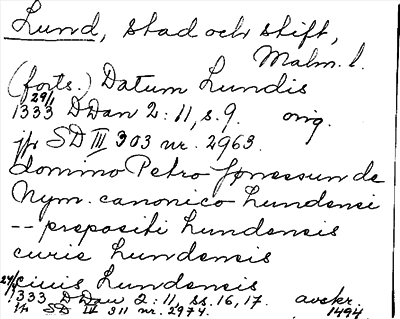 Lund, stad och stift,
Malm. l.
(forts.) Datum Lundis
29/1
1333 DDan 2:11, s. 9. orig.
jfr SD III 303 nr. 2963.
domino Petro Jonessun de
Nym. canonico lundensi
-- prepositi lundensis
curie lundensis
ciuis lundensis
1333 DDan 2:11, ss. 16, 17. avskr.
jfr SD IV 311 nr. 2974. 1494.